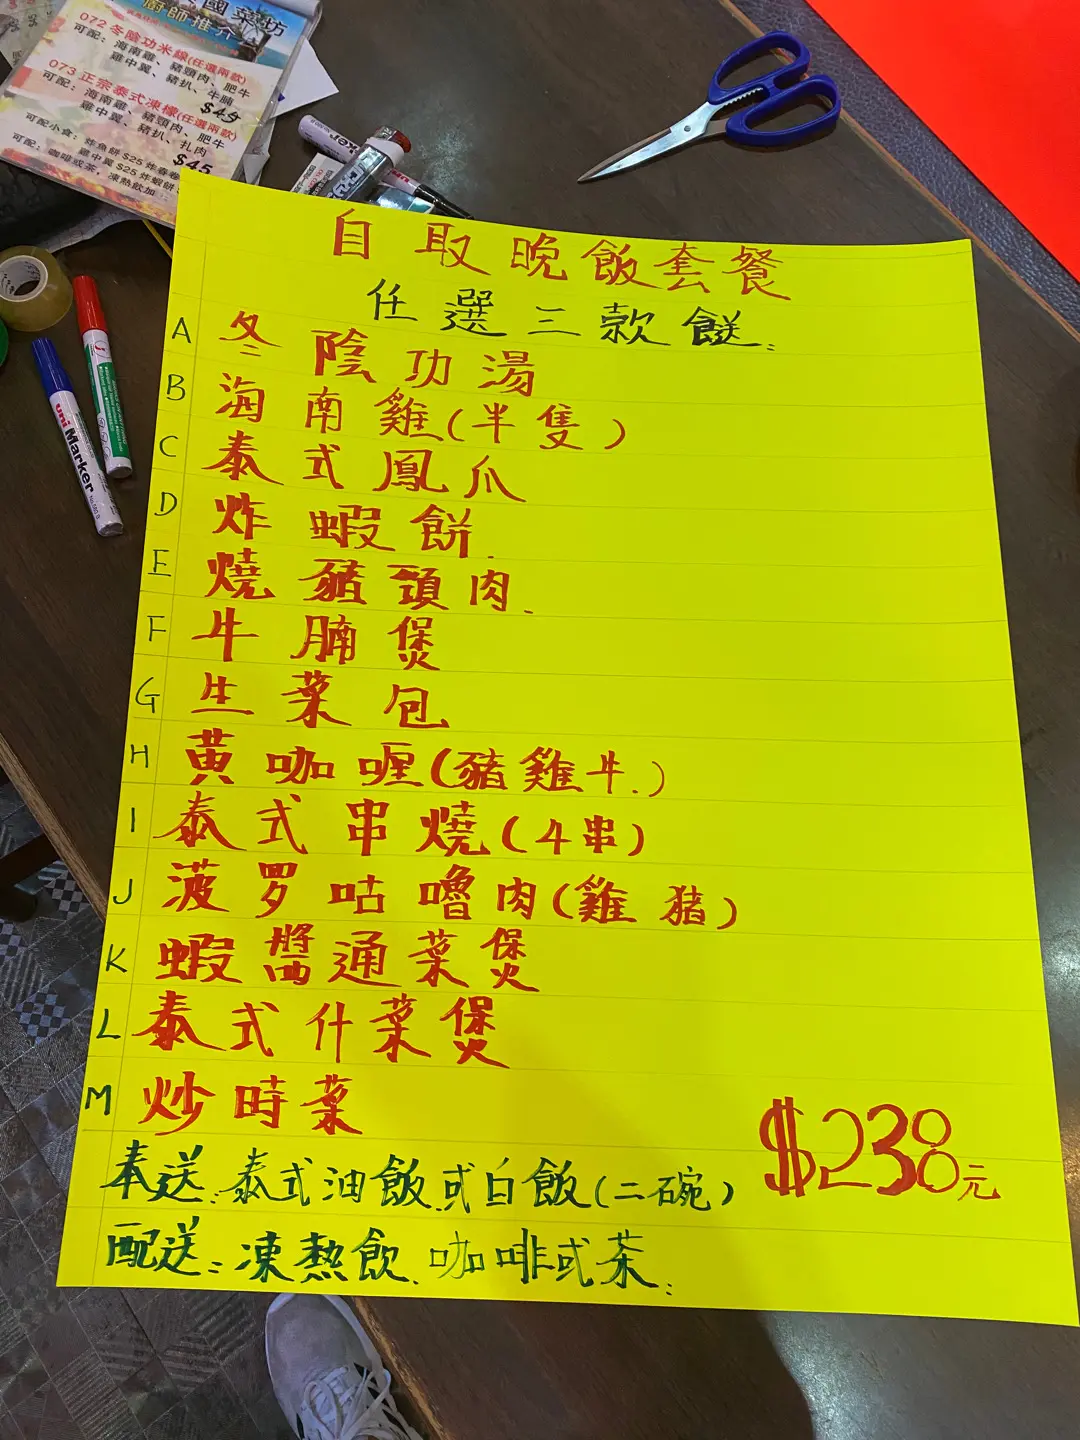 國菜坊
廚師推介
072 冬陰功米線(任選兩款)
可配：海南雞、豬頸肉、肥牛
雞中翼、豬扒、牛腩
$45
073 正宗泰式凍檬(任選兩款)
可配：海南雞、豬頸肉、肥牛
雞中翼、豬扒、扎肉
$45
可配小食：炸魚餅 $25 炸春卷
雞中翼 $25 炸蝦餅
可配：咖啡或茶，凍熱飲加
uni Marker
自取晚飯套餐
任選三款餸：
A 冬陰功湯
B 海南雞(半隻)
C 泰式鳳爪
D 炸蝦餅.
E 燒豬頸肉.
F 牛腩煲
G 生菜包
H 黃咖喱(豬雞牛.)
I 泰式串燒(4串)
J 菠罗咕嚕肉(雞豬)
K 蝦醬通菜煲
L 泰式什菜煲
M 炒時菜
$238元
奉送：泰式油飯或白飯(二碗)
配送：凍熱飲.咖啡或茶：